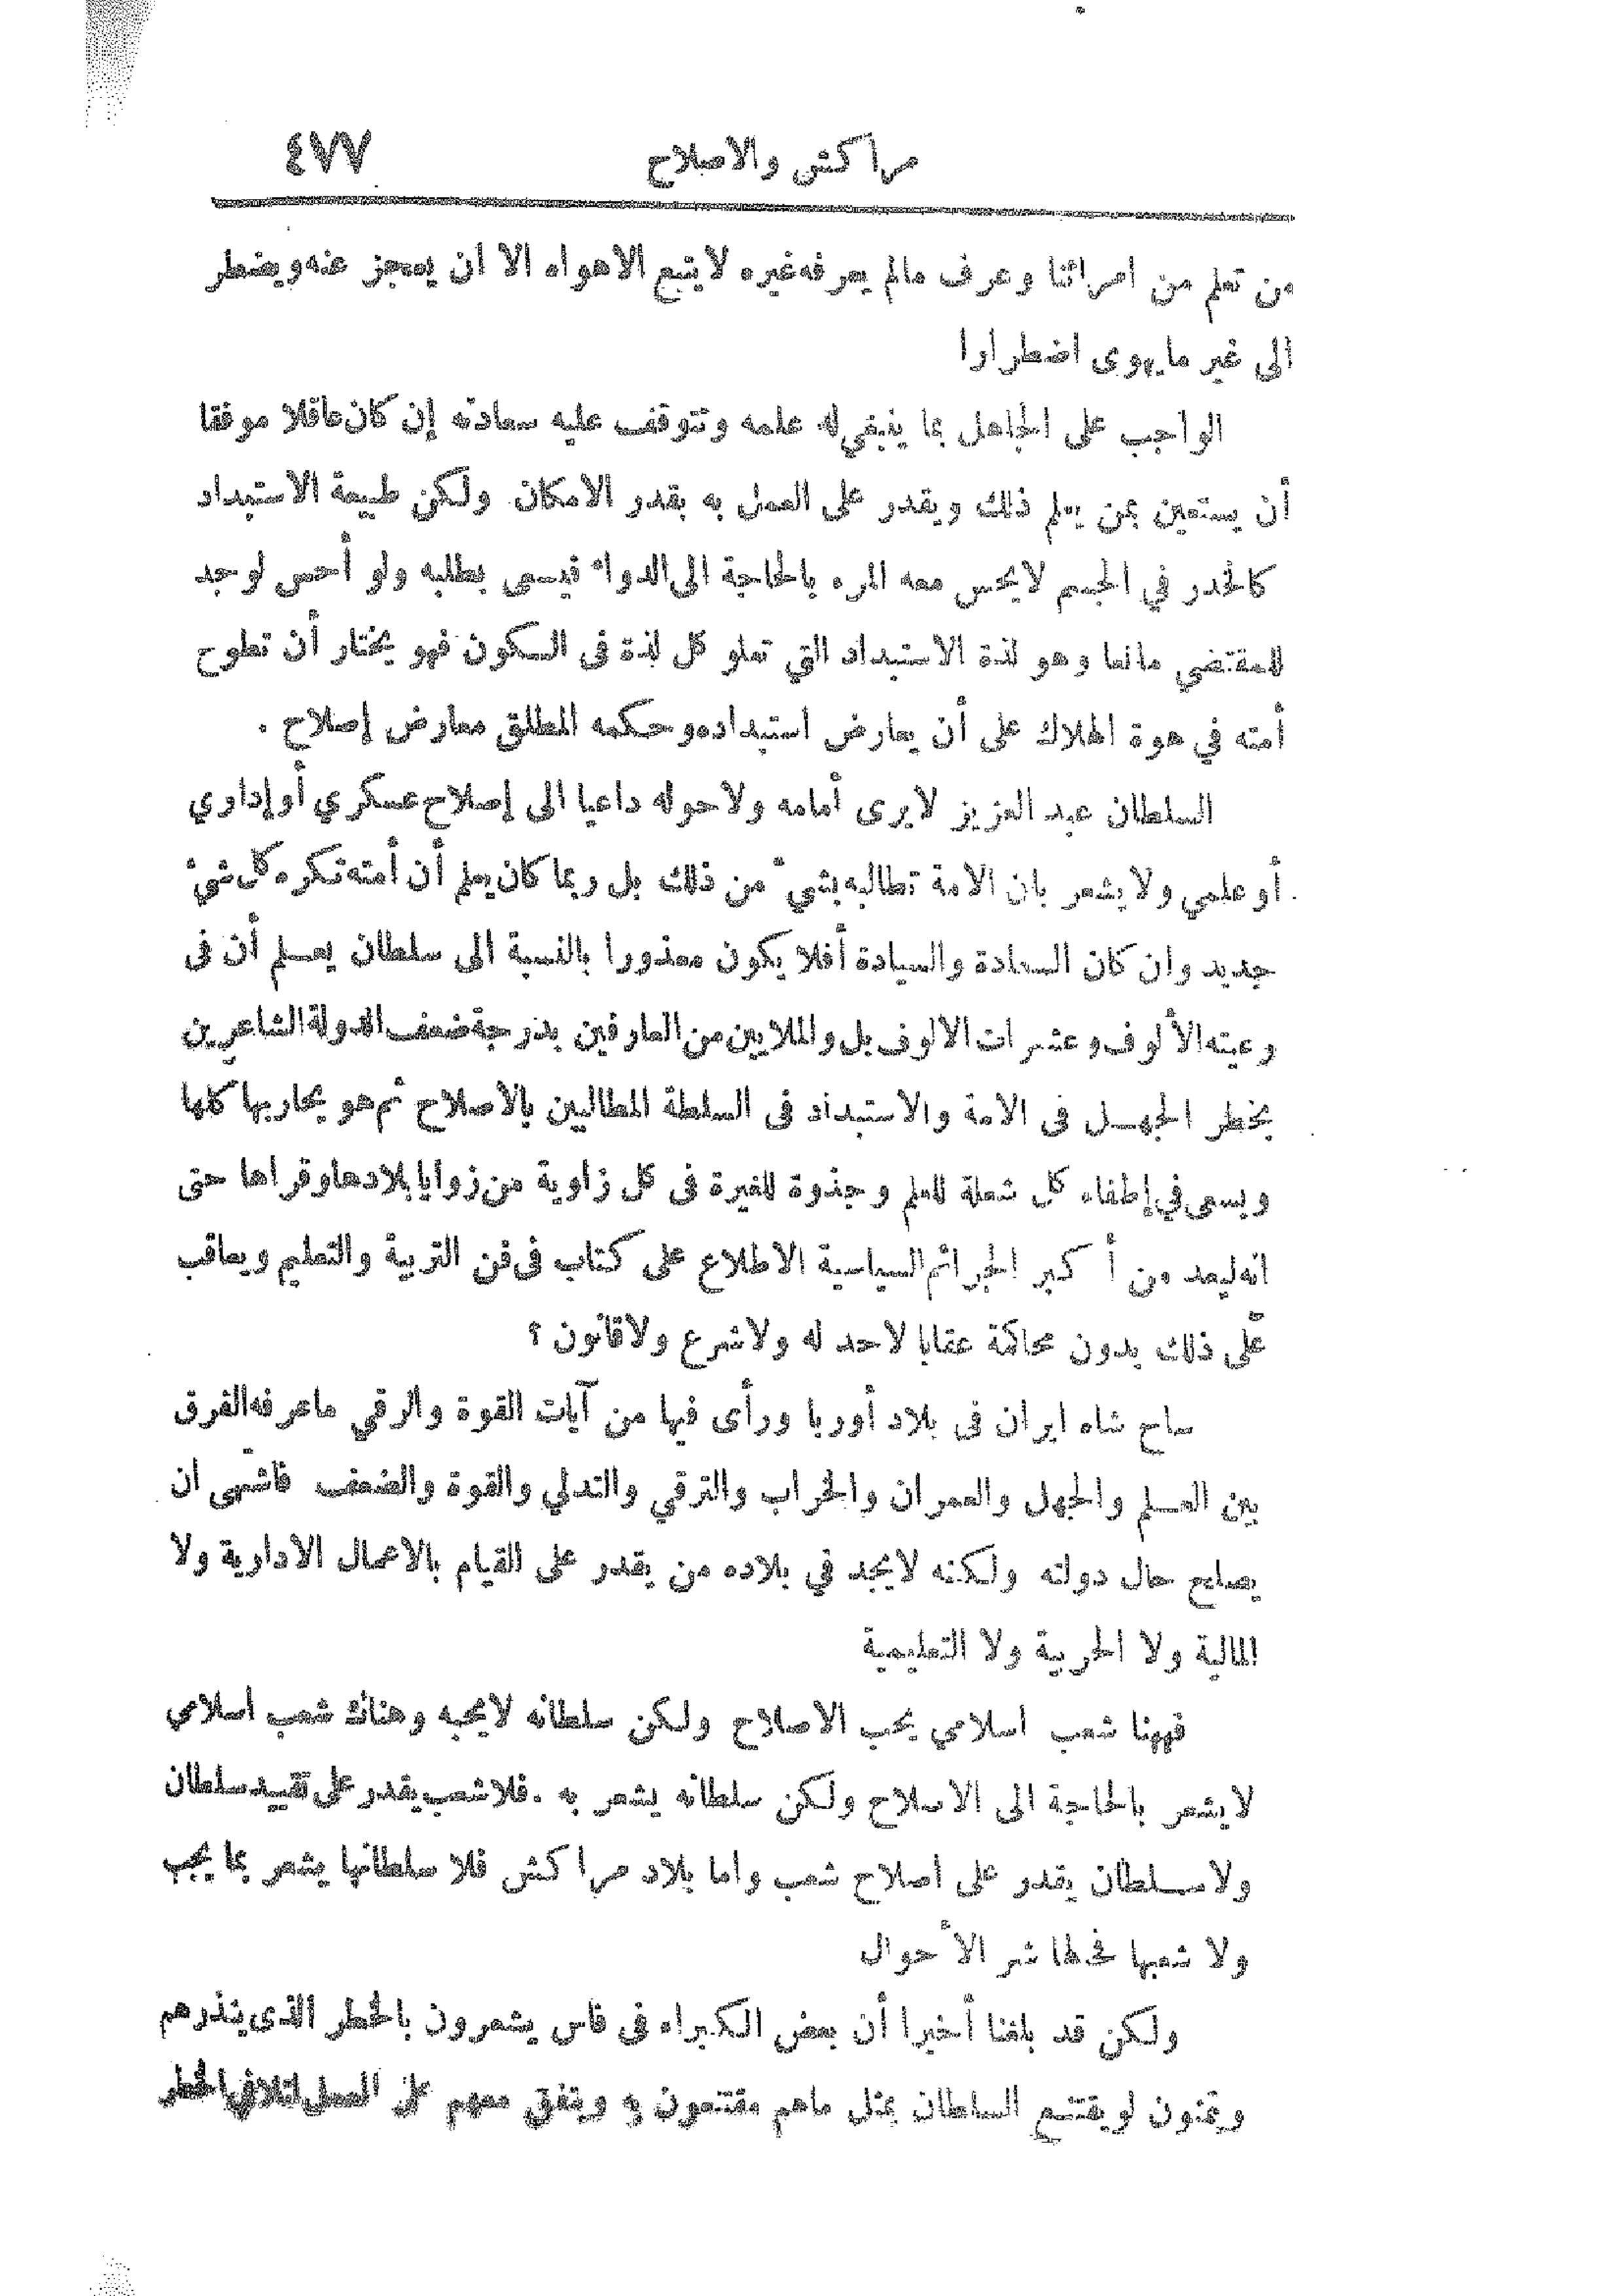 مراكش والاصلاح ٤٧٧
من تعلم من امرائنا وعرف مالم يعرفه غيره لا يتبع الاهواء الا ان يعجز عنه ويضطر
الى غير ما يهوى اضطرارا
الواجب على الجاهل بما ينبغي له علمه وتتوقف عليه سعادته إن كان عاقلا موفقا
أن يستعين بمن يعلم ذلك ويقدر على العمل به بقدر الامكان ولكن طبيعة الاستبداد
كالخدر في الجسم لا يحس معه المرء بالحاجة الى الدواء فيسعى بطلبه ولو أحس لوجد
للمقتضي مانعا وهو لذة الاستبداد التي تعلو كل لذة فى السكون فهو يختار أن تطوح
أمته في هوة الهلاك على أن يعارض استبداده وحكمه المطلق معارض إصلاح .
السلطان عبد العزيز لا يرى أمامه ولا حوله داعيا الى إصلاح عسكري أو إداري
أو علمي ولا يشعر بان الامة تطالبه بشيء من ذلك بل ربما كان يعلم أن أمته تكره كل شيء
جديد وان كان السعادة والسيادة أفلا يكون معذورا بالنسبة الى سلطان يعلم أن فى
رعيته الألوف وعشرات الالوف بل والملايين من العارفين بدرجة ضعف الدولة الشاعرين
بخطر الجهل فى الامة والاستبداد فى السلطة المطالبين بالاصلاح ثم هو يحاربها كلها
ويسعى في إطفاء كل شعلة للعلم وجذوة للغيرة فى كل زاوية من زوايا بلادها وقراها حتى
انه ليعد من أكبر الجرائم السياسية الاطلاع على كتاب فى فن التربية والتعليم ويعاقب
على ذلك بدون محاكمة عقابا لاحد له ولا شرع ولا قانون ؟
ساح شاه ايران فى بلاد أوربا ورأى فيها من آيات القوة والرقي ما عرفه الفرق
بين العلم والجهل والعمران والخراب والترقي والتدلي والقوة والضعف فاشتهى ان
يصلح حال دولته ولكنه لا يجد في بلاده من يقدر على القيام بالاعمال الادارية ولا
المالية ولا الحربية ولا التعليمية
فههنا شعب اسلامي يحب الاصلاح ولكن سلطانه لا يحبه وهناك شعب اسلامي
لا يشعر بالحاجة الى الاصلاح ولكن سلطانه يشعر به . فلا شعب يقدر على تقييد سلطان
ولا سلطان يقدر على اصلاح شعب واما بلاد مراكش فلا سلطانها يشعر بما يجب
ولا شعبها فحالها شر الأحوال
ولكن قد بلغنا أخيرا أن بعض الكبراء فى فاس يشعرون بالخطر الذى ينذرهم
ويتمنون لو يقتنع السلطان بمثل ماهم مقتنعون به ويتفق معهم على العمل لتلافي الخطر